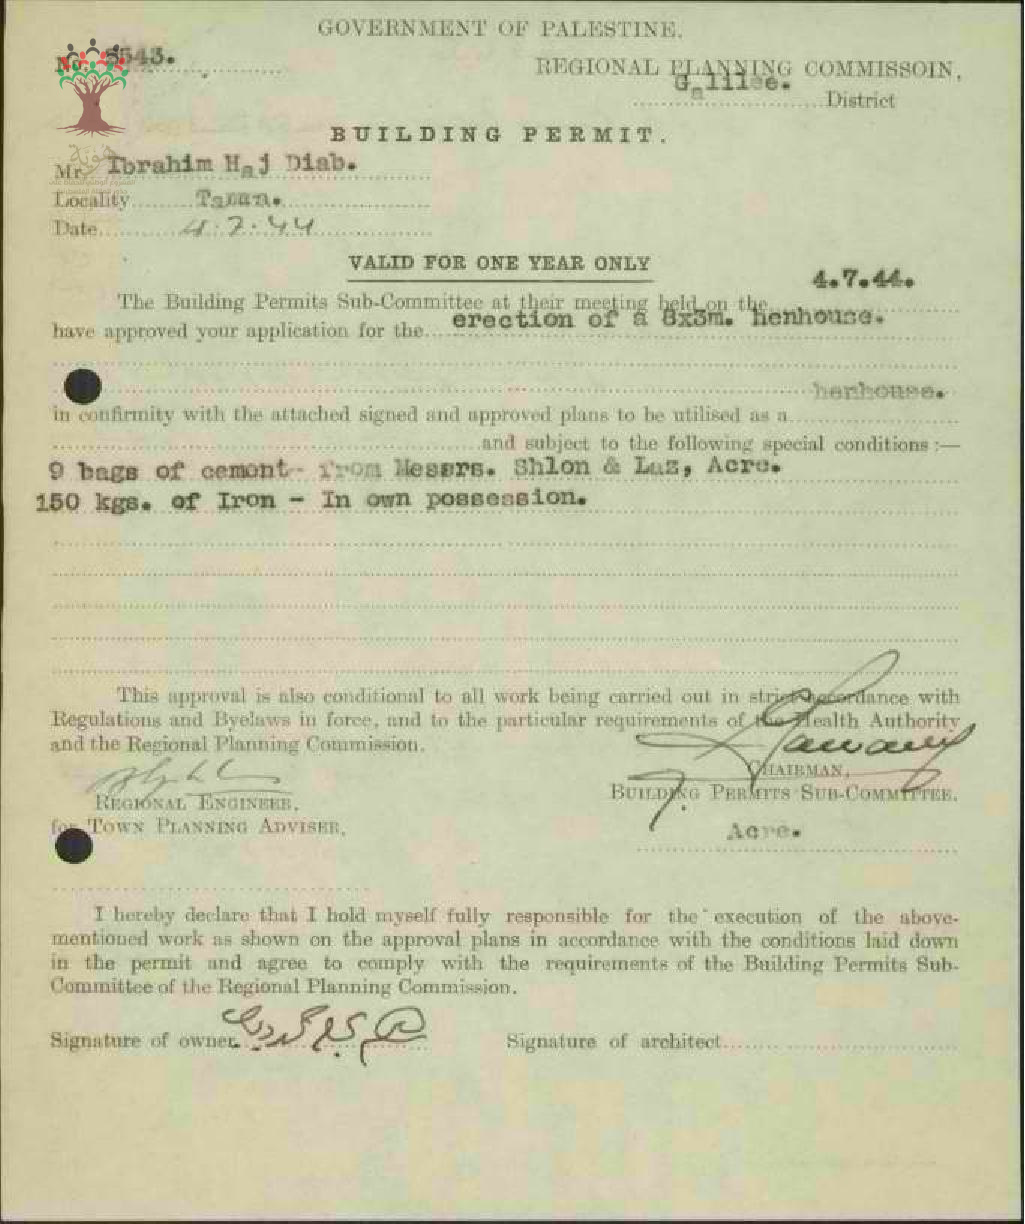 GOVERNMENT OF PALESTINE.
No. 8543.
REGIONAL PLANNING COMMISSOIN,
Galilee. District
BUILDING PERMIT.
Mr. Ibrahim Haj Diab.
Locality
Date 4.7.44
VALID FOR ONE YEAR ONLY
4.7.44.
The Building Permits Sub-Committee at their meeting held on the
have approved your application for the erection of a 8x3m. henhouse.
henhouse.
in confirmity with the attached signed and approved plans to be utilised as a
and subject to the following special conditions :—
9 bags of cement- from Messrs. Shlon & Laz, Acre.
150 kgs. of Iron - In own possession.
This approval is also conditional to all work being carried out in strict accordance with
Regulations and Byelaws in force, and to the particular requirements of the Health Authority
and the Regional Planning Commission.
REGIONAL ENGINEER,
for TOWN PLANNING ADVISER,
CHAIRMAN,
BUILDING PERMITS SUB-COMMITTEE.
Acre.
I hereby declare that I hold myself fully responsible for the execution of the above-
mentioned work as shown on the approval plans in accordance with the conditions laid down
in the permit and agree to comply with the requirements of the Building Permits Sub-
Committee of the Regional Planning Commission.
Signature of owner
Signature of architect